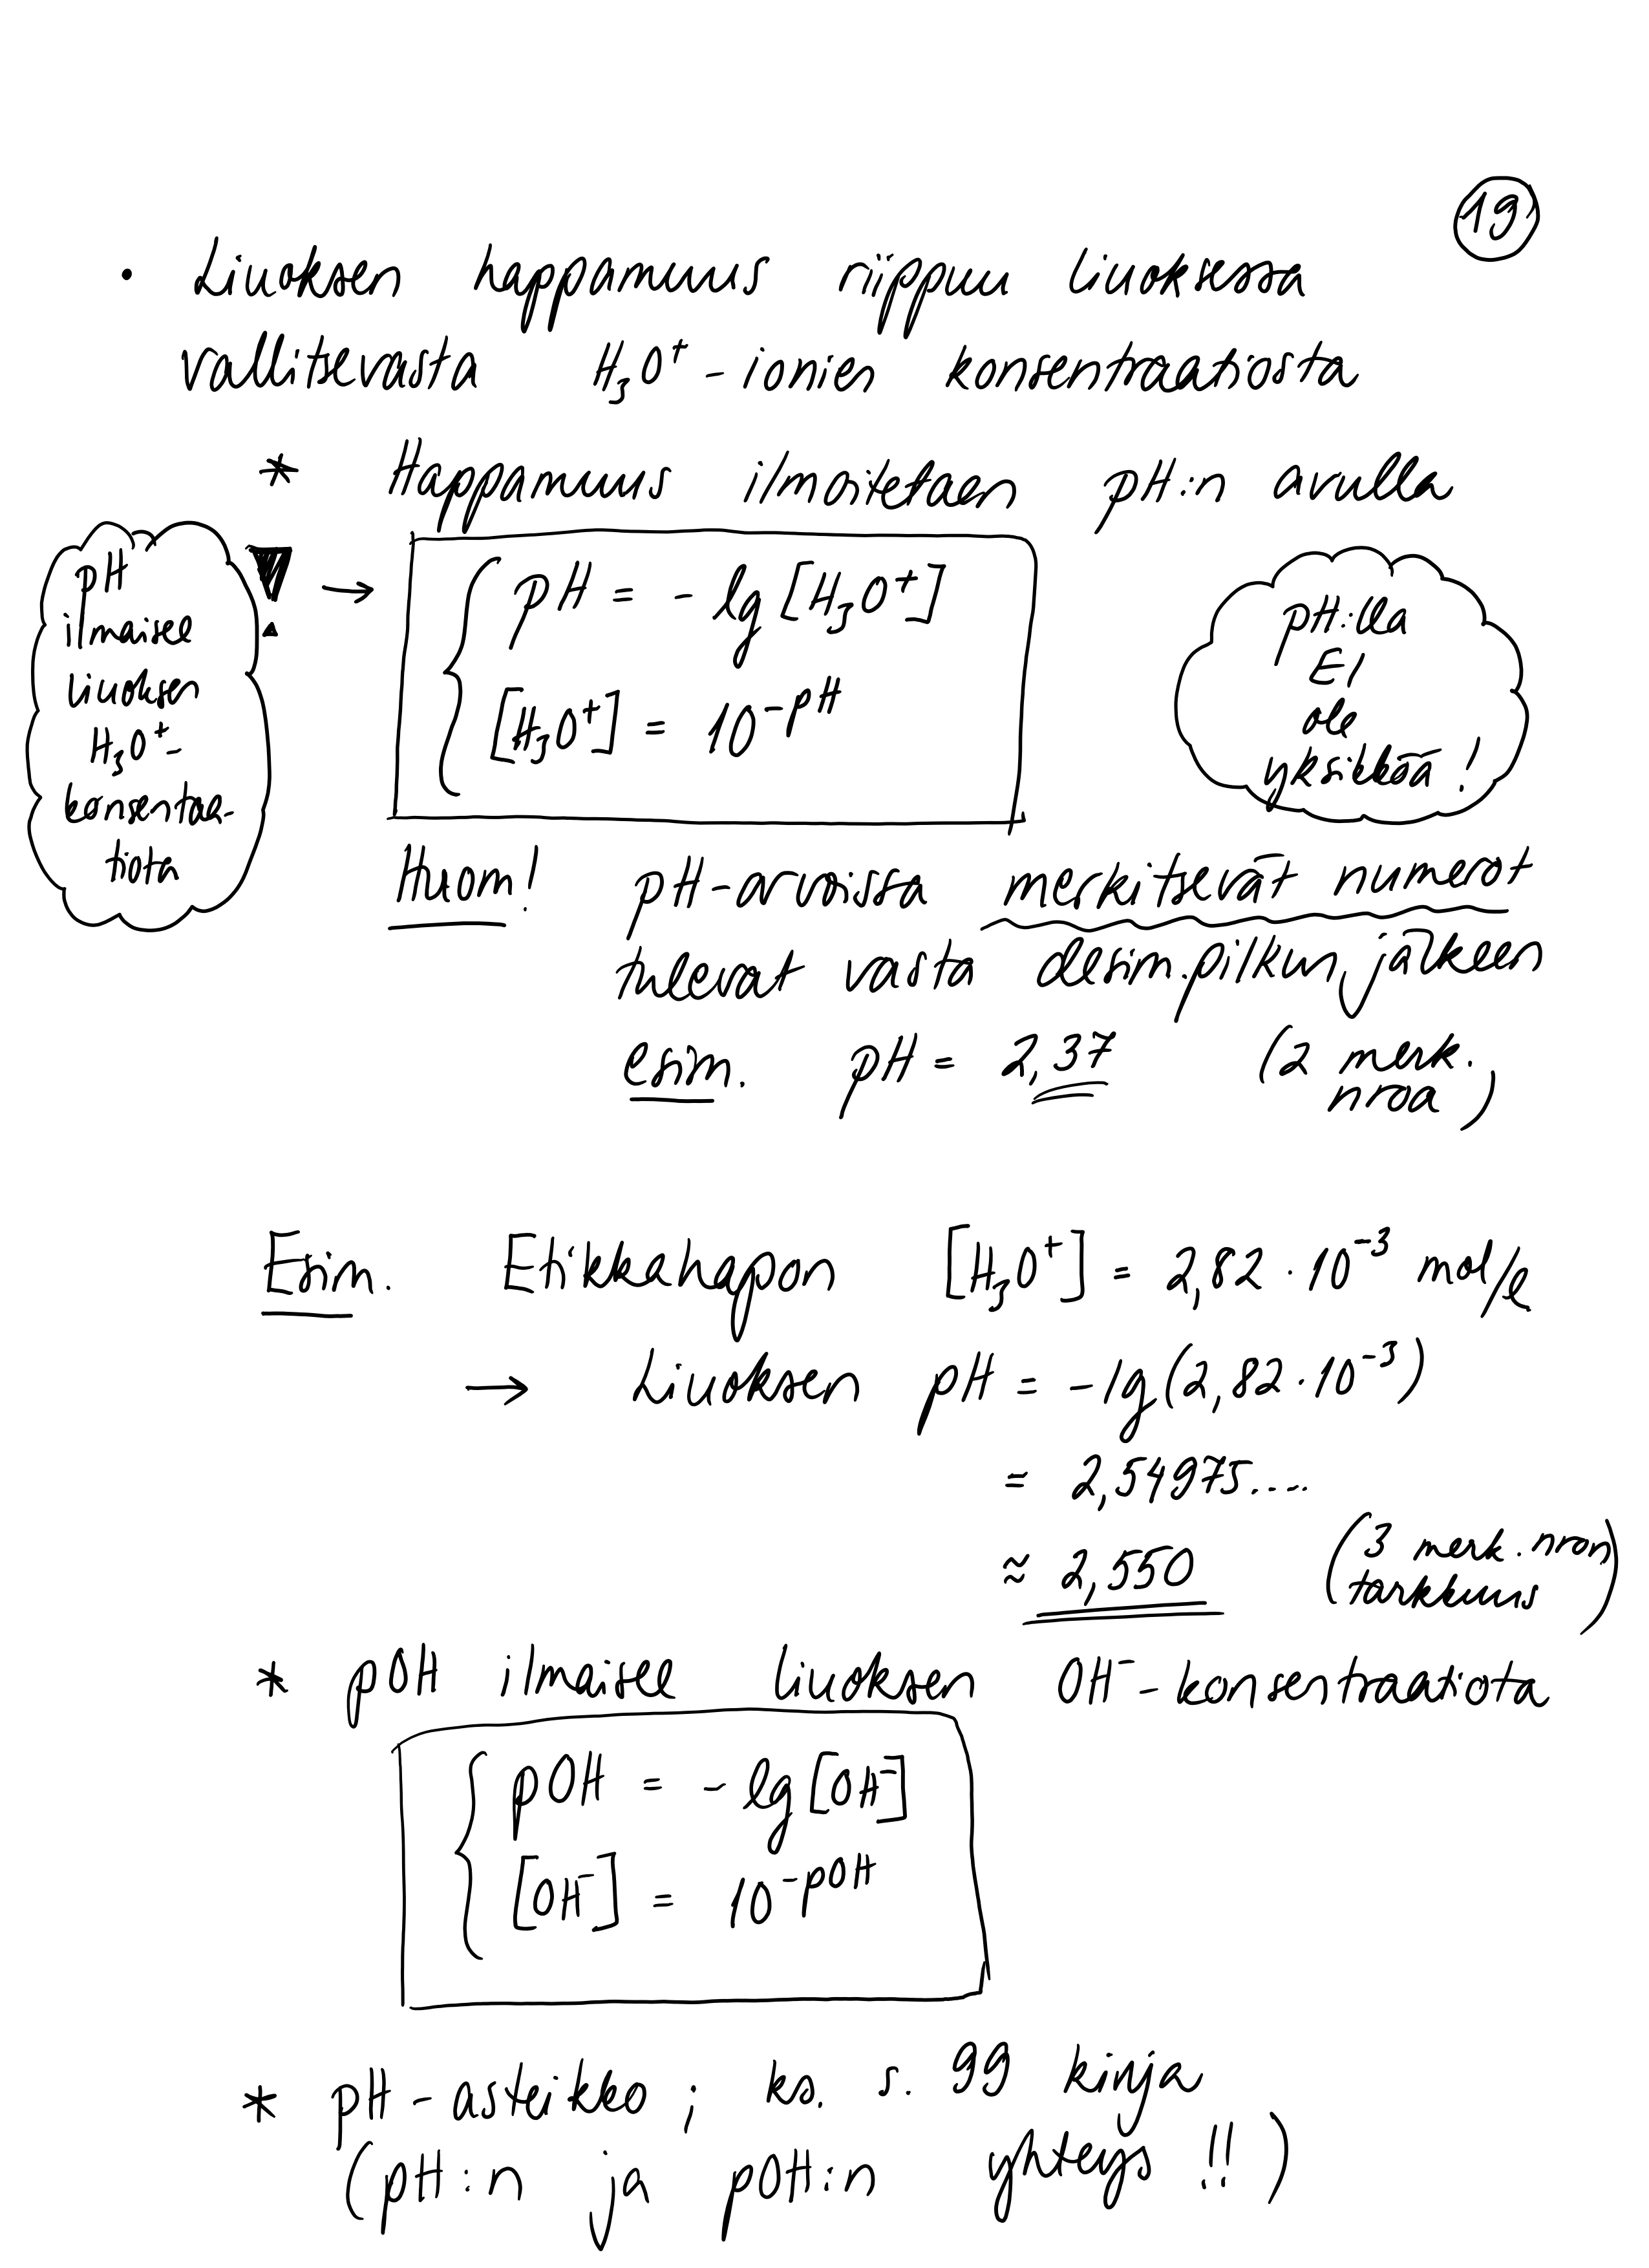 19
• Liuoksen happamuus riippuu liuoksessa
vallitsevasta H₃O⁺-ionien konsentraatiosta
* Happamuus ilmoitetaan pH:n avulla
pH
ilmaisee
liuoksen
H₃O⁺-
konsentaa-
tiota
! →
{ pH = - lg [H₃O⁺]
[H₃O⁺] = 10^(-pH)
pH:lla
EI
ole
yksikköä !
Huom! pH-arvoissa merkitsevät numerot
tulevat vasta desim.pilkun jälkeen
esim. pH = 2,37 (2 merk.
nroa)
Esim. Etikkahapon [H₃O⁺] = 2,82 · 10⁻³ mol/l
→ Liuoksen pH = -lg(2,82 · 10⁻³)
= 2,54975....
≈ 2,550 (3 merk. nron
tarkkuus)
* pOH ilmaisee liuoksen OH⁻-konsentraatiota
{ pOH = - lg [OH⁻]
[OH⁻] = 10^(-pOH)
* pH-asteikko ; ks. s. 99 kirja
(pH:n ja pOH:n yhteys !!)